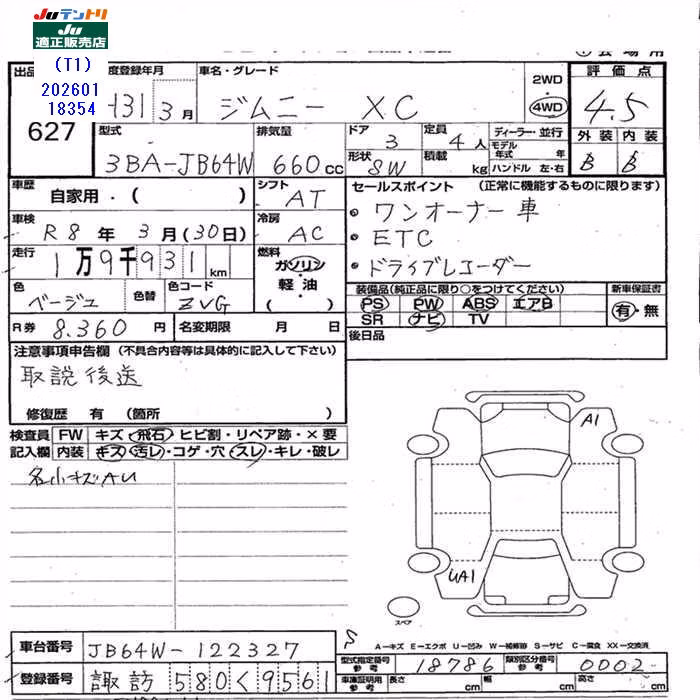 Juテントリ
Ju
適正販売店
(T1)
202601
18354
出品
627
度登録年月
H31 3月
車名・グレード
ジムニー XC
2WD
4WD
評価点
4.5
外装 内装
B B
型式
3BA-JB64W
排気量
660 cc
ドア
3
形状
SW
定員
4人
積載
kg
ディーラー・並行
モデル年式 年
ハンドル 左・右
車歴
自家用・( )
シフト
AT
セールスポイント (正常に機能するものに限ります)
・ワンオーナー車
・ETC
・ドライブレコーダー
車検
R8年 3月(30日)
冷房
AC
走行
1万9千931km
燃料
ガソリン
軽油
( )
色
ベージュ
色替
色コード
ZVG
装備品(純正品に限り○をつけてください)
PS PW ABS エアB
SR ナビ TV
新車保証書
有・無
R券 8.360円 名変期限 月 日
後日品
注意事項申告欄 (不具合内容等は具体的に記入して下さい)
取説後送
修復歴 有 (箇所 )
検査員
記入欄
FW キズ・飛石・ヒビ割・リペア跡・×要
内装 キズ・汚レ・コゲ・穴・スレ・キレ・破レ
小キズAU
A1
UA1
スペア
A―キズ E―エクボ U―凹み W―補修跡 S―サビ C―腐食 XX―交換済
車台番号 JB64W-122327
型式指定番号 18786
類別区分番号 0002
登録番号 諏訪 580く9561
車庫証明用参考
長さ cm
幅 cm
高さ cm